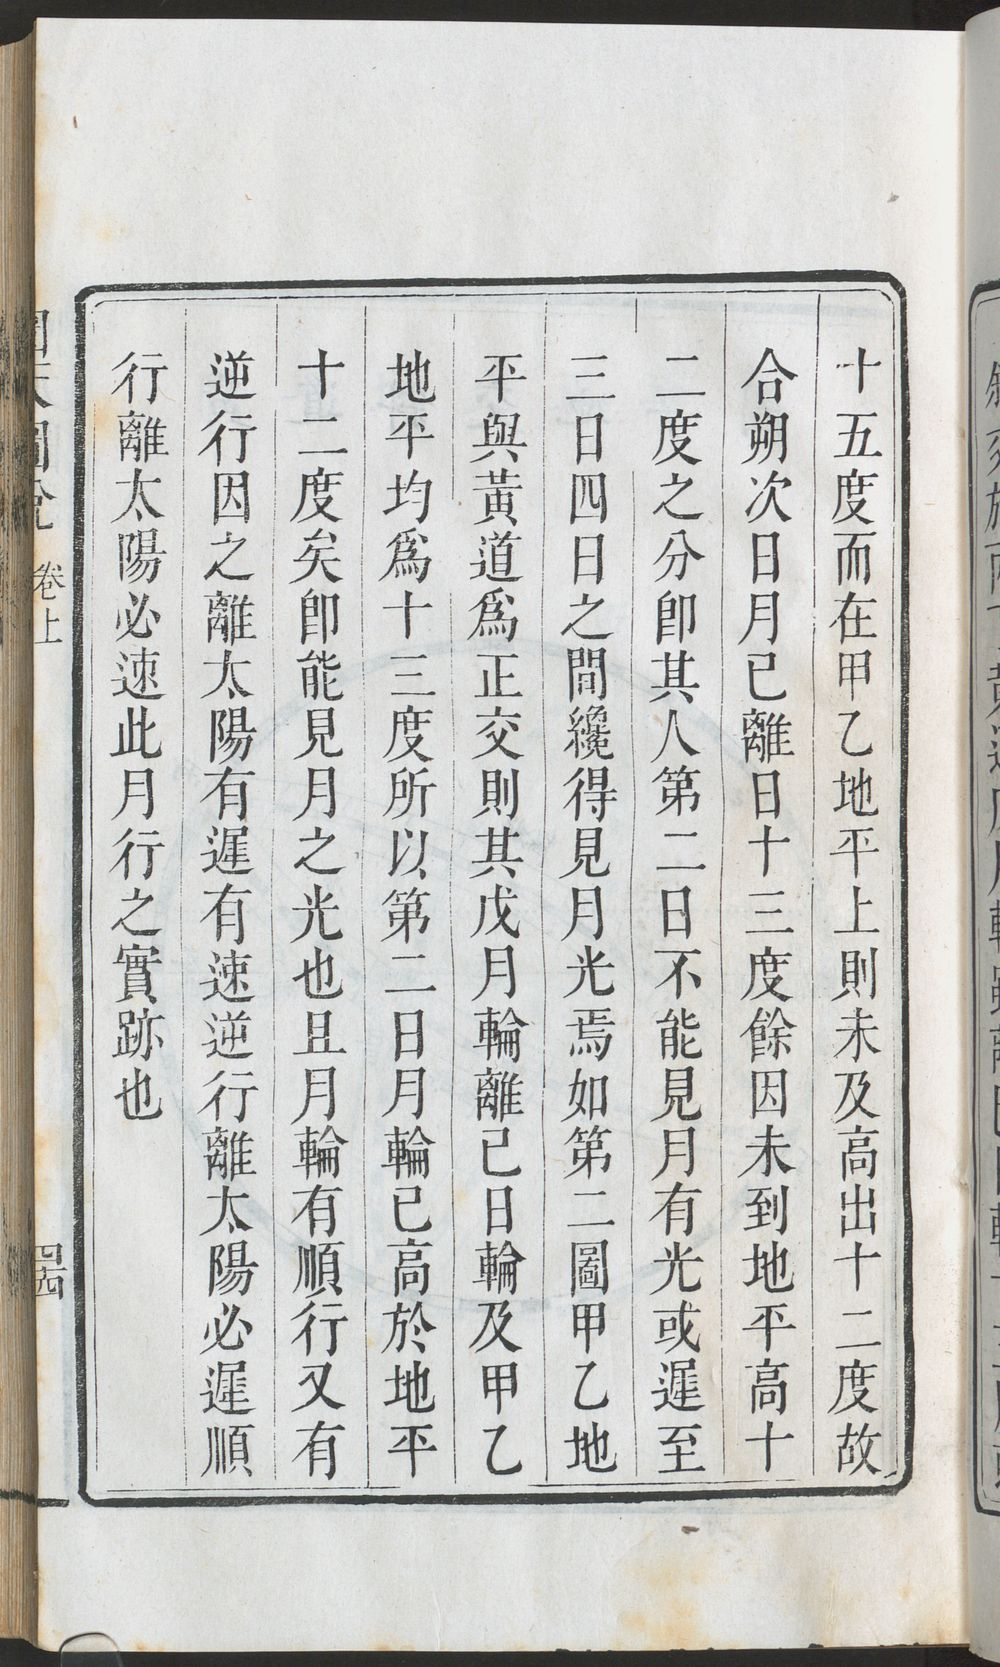 十五度而在甲乙地平上則未及高出十二度故
合朔次日月已離日十三度餘因未到地平高十
二度之分卽其人第二日不能見月有光或遲至
三日四日之間纔得見月光焉如第二圖甲乙地
平與黃道爲正交則其戊月輪離己日輪及甲乙
地平均爲十三度所以第二日月輪已高於地平
十二度矣卽能見月之光也且月輪有順行又有
逆行因之離太陽有遲有速逆行離太陽必遲順
行離太陽必速此月行之實跡也
卷上
四四